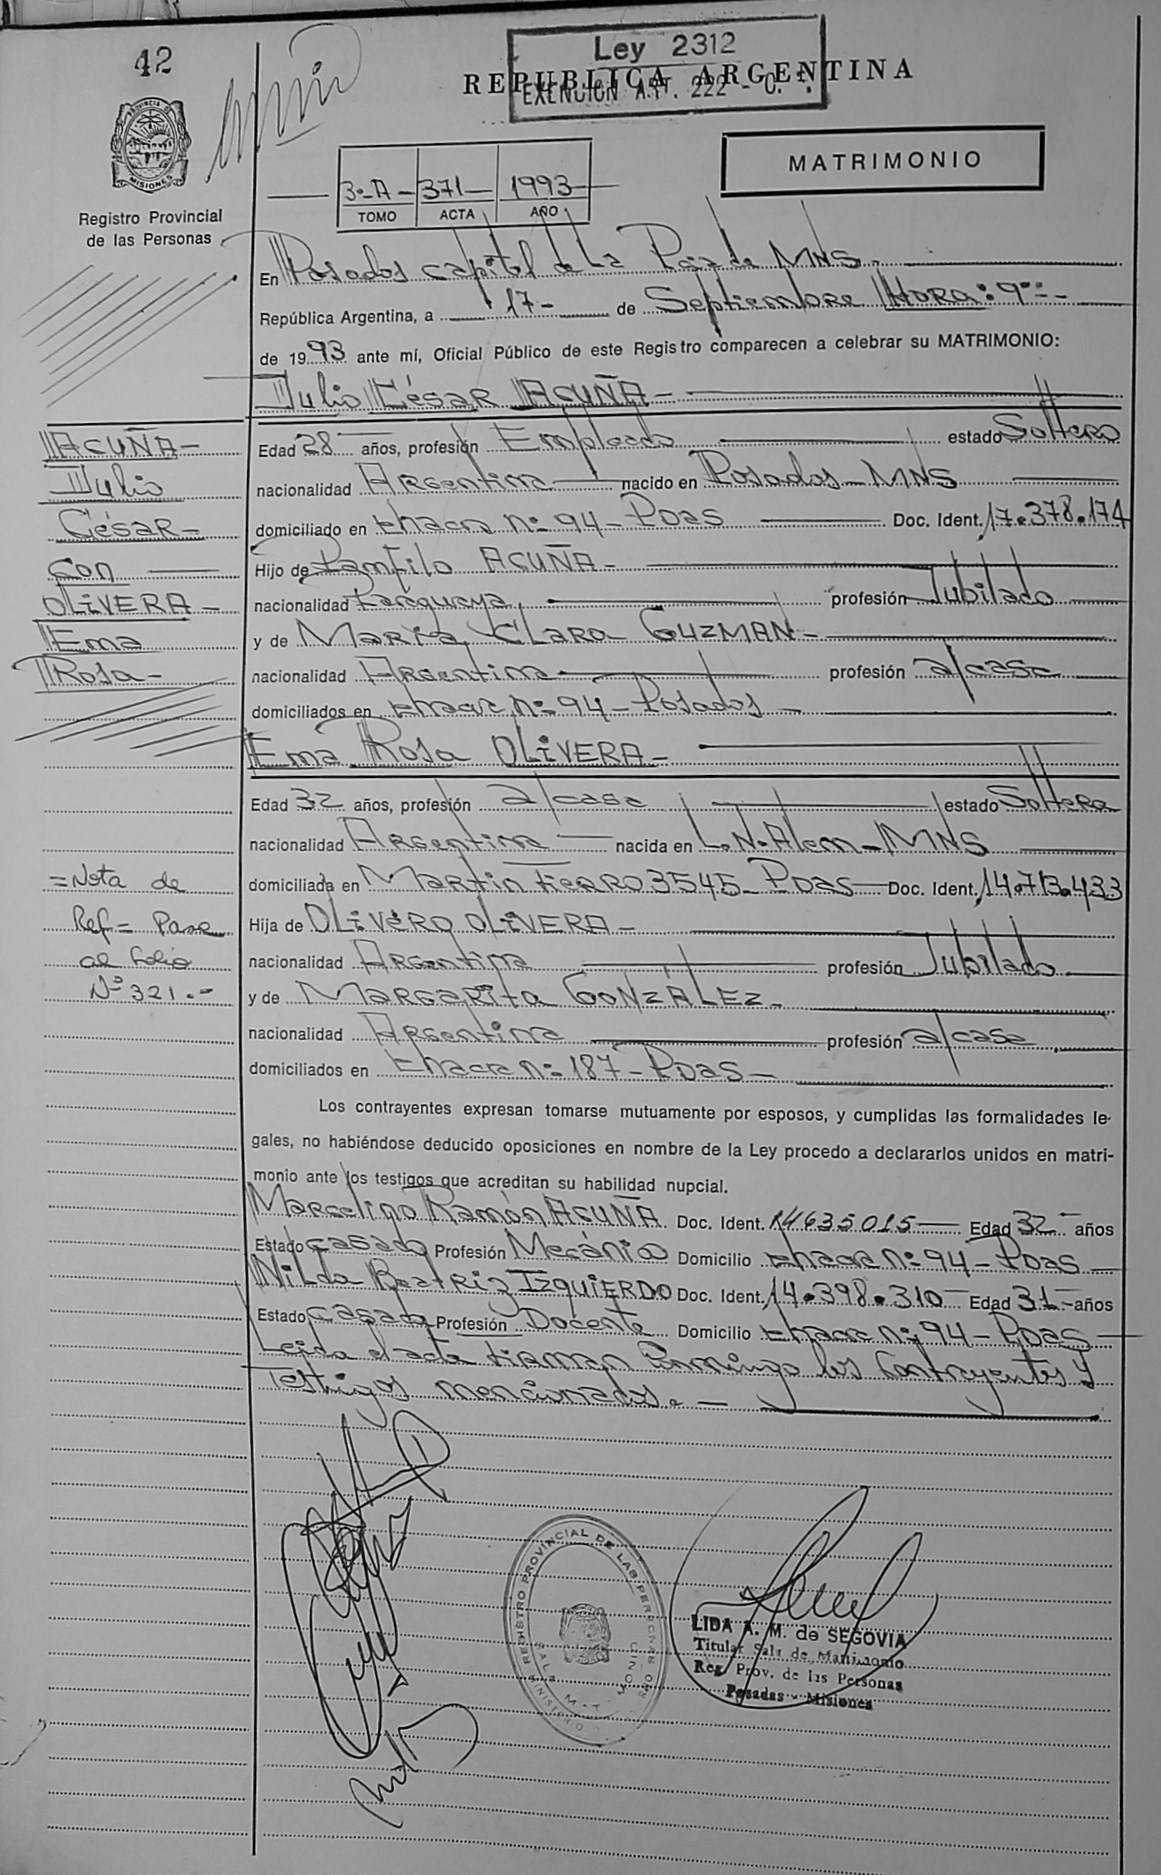 42
Ley 2312
REPUBLICA ARGENTINA
EXENCION ART. 222 - C.
PROVINCIA DE MISIONES
MATRIMONIO
3-A- 371- 1993-
TOMO ACTA AÑO
Registro Provincial
de las Personas
En Posadas capital de La Pcia de MNS.
República Argentina, a 17- de Septiembre HORA: 9:-
de 1993 ante mí, Oficial Público de este Registro comparecen a celebrar su MATRIMONIO:
Julio César ACUÑA-
ACUÑA-
Julio
César-
con
OLIVERA-
Ema
Rosa-
Edad 28 años, profesión Empleado estado Soltero
nacionalidad Argentina nacido en Posadas-MNS
domiciliado en chacra nº 94-Pdas Doc. Ident. 17.378.174
Hijo de Pamfilo ACUÑA-
nacionalidad Paraguaya, profesión Jubilado
y de María Clara GUZMAN-
nacionalidad Argentina profesión a/casa
domiciliados en chacra nº 94-Posadas-
Ema Rosa OLIVERA-
Edad 32 años, profesión a/casa estado Soltera
nacionalidad Argentina nacida en L.N.Alem-MNS
domiciliada en Martin Fierro 3545-Pdas Doc. Ident. 14.713.433
Hija de OLIVERO OLIVERA-
nacionalidad Argentina profesión Jubilado
y de MARGARITA GONZÁLEZ-
nacionalidad Argentina profesión a/casa
domiciliados en chacra nº 187-Pdas-
=Nota de
Ref= Pase
al folio
Nº 321.-
Los contrayentes expresan tomarse mutuamente por esposos, y cumplidas las formalidades le-
gales, no habiéndose deducido oposiciones en nombre de la Ley procedo a declararlos unidos en matri-
monio ante los testigos que acreditan su habilidad nupcial.
Marcelino Ramón ACUÑA Doc. Ident. 14635015 Edad 32 años
Estado casado Profesión Mecánico Domicilio chacra nº 94-Pdas-
Nilda Beatriz IZQUIERDO Doc. Ident. 14.398.310 Edad 31 años
Estado casada Profesión Docente Domicilio chacra nº 94-Pdas-
Leida el acta firman conmigo los Contrayentes y
Testigos mencionados.-
REGISTRO PROVINCIAL DE LAS PERSONAS
LIDA A. M. de SEGOVIA
Titular Sala de Matrimonio
Reg. Prov. de las Personas
Posadas - Misiones